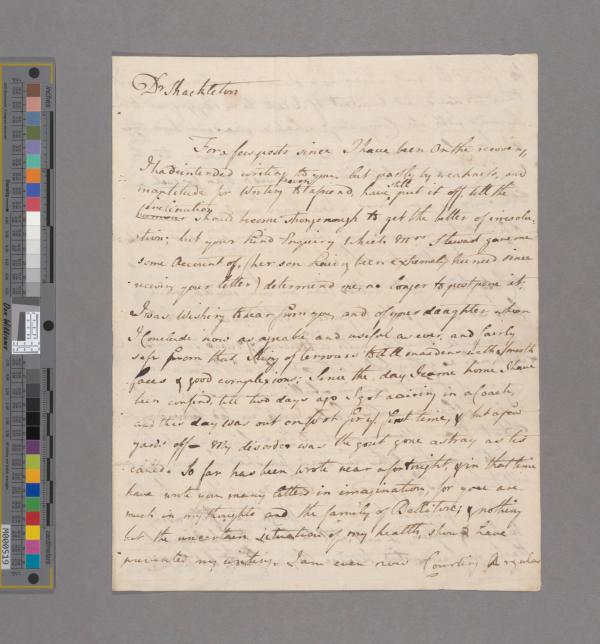 Dr Shackleton
For a few posts since I have been on the recovery,
I had intended writing to you, but partly by weakness, and
inaptitude for writing even to a friend, have still put it off till the
inclination
should become strong enough to get the better of irresolu-
tion; but your kind Enquiry which Mrs Steward gave me
some Account of, (her son having been extremely hurried since
receiving your letter) determined me, no longer to postpone it.
I was wishing to hear from you, and of your daughter, whom
I conclude now as agreable and useful as ever, and fairly
safe from that King of terrours to all maidens with smooth
faces & good complexions; Since the day I came home I have
been confined, till two days ago I got a airing in a coach,
and this day was out on foot for ye first time, & but a few
yards off— My disorder was the gout gone astray as its
called. So far has been wrote near a fortnight, & in that time
have wrote you many letters in imagination, for you are
much in my thoughts and the family of Ballitore; & nothing
but the uncertain situation of my health, should have
prevented my writing. I am even now Courting a regular
inches
centimetres
Don Williams
M000519